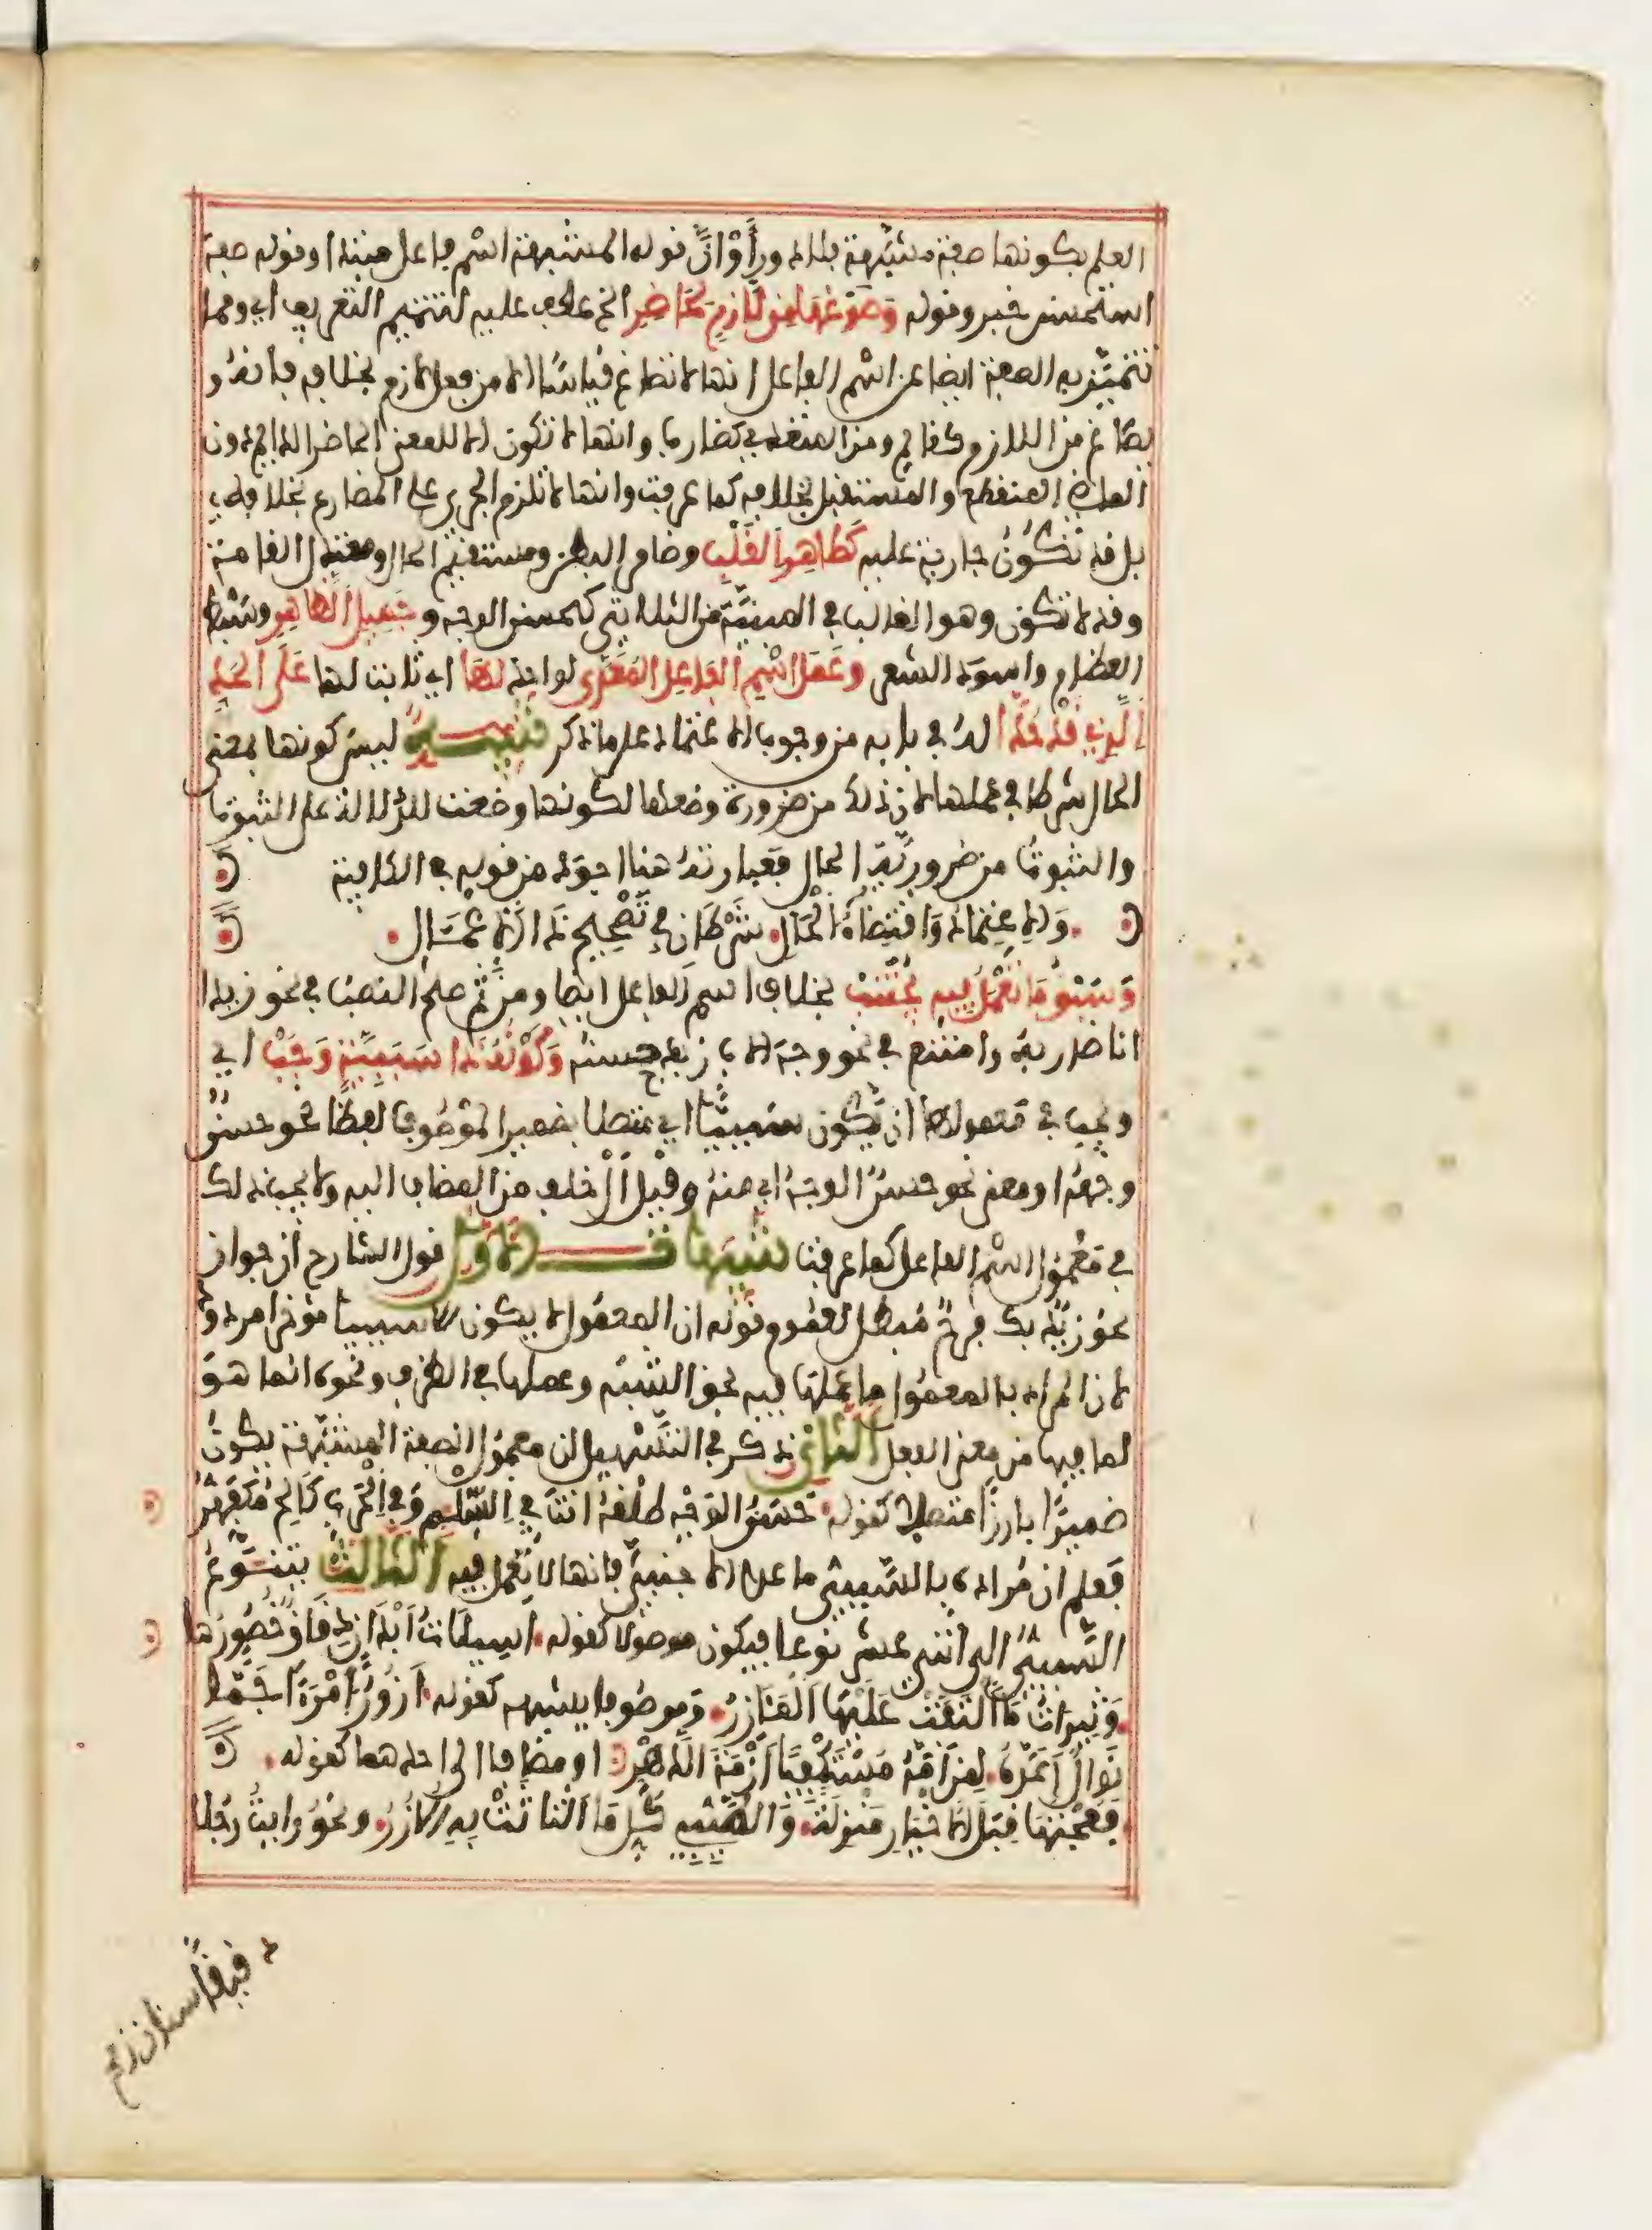 العلم بكونها صفة مشبهة فلا دور أو أن قوله المشبهة اسم فاعل مبتدا وقوله صفة
استحسن خبر وقوله وصوغها من لازم لحاضر الخ عطف عليه لتتميم التعريف أي ومما
تتميز به الصفة ايضا عن اسم الفاعل انها لا تصاغ قياسا الا من فعل لازم بخلافه فانه و
يصاغ من اللازم كقائم ومن المتعدي كضارب وانها لا تكون الا للمعنى الحاضر الدائم دون
الماضي المنقطع والمستقبل بخلافه كما عرفت وانها لا تلزم الجري على المضارع بخلافه
بل قد تكون جارية عليه كطاهر القلب وضامر البطن ومستقيم الحال ومعتدل القامة
وقد لا تكون وهو الغالب في المبنية من الثلاثي كحسن الوجه وجميل الظاهر وسبط
العظام واسود الشعر وعمل اسم الفاعل المعدى لواحد لها أي ثابت لها على الحد
الذي قد حدا له في بابه من وجوب الاعتماد على ما ذكر تنبيه ليس كونها بمعنى
الحال شرطا في عملها لان ذلك من ضرورة وضعها لكونها وضعت للدلالة على الثبوت
والثبوت من ضرورته الحال فعبارته هنا اجود من قوله في الكافية
والاعتماد واقتضاء الحال شرطان في تصحيح ذا الاعمال
وسبق ما تعمل فيه مجتنب بخلاف اسم الفاعل ايضا ومن ثم صح النصب في نحو زيدا
انا ضاربه وامتنع في نحو وجه الاب زيد حسنه وكونه ذا سببية وجب أي
ويجب في معمولها ان يكون سببيا أي متصلا بضمير الموصوف لفظا نحو حسن
وجهه او معنى نحو حسن الوجه أي منه وقيل ال خلف من المضاف اليه ولا يجب ذلك
في معمول اسم الفاعل كما عرفت تنبيهات الاول قول الشارح ان جواز
نحو زيد بك فرح مبطل لعموم قوله ان المعمول لا يكون الا سببيا مؤخرا مردود
لان المراد بالمعمول ما عملها فيه بحق الشبه وعملها في الظرف ونحوه انما هو
لما فيها من معنى الفعل الثاني ذكر في التسهيل ان معمول الصفة المشبهة يكون
ضميرا بارزا متصلا كقوله حسن الوجه طلقه انت في السلم وفي الحرب كالح مكفهر
فعلم ان مراده بالسببي ما عدا الاجنبي فانها لا تعمل فيه الثالث يتنوع
السببي الى اثني عشر نوعا فيكون موصولا كقوله اسيلات ابدان دقاق خصورها
وثيرات ما التفت عليها المآزر وموصوفا يشبهه كقوله ازور امرءا جما
نوال اعده لمن امه مستكفيا ازمة الدهر او مضافا الى احدهما كقوله
فعجتها قبل الاخيار منزلة والطيبي كل ما التاثت به الازر ونحو رأيت رجلا